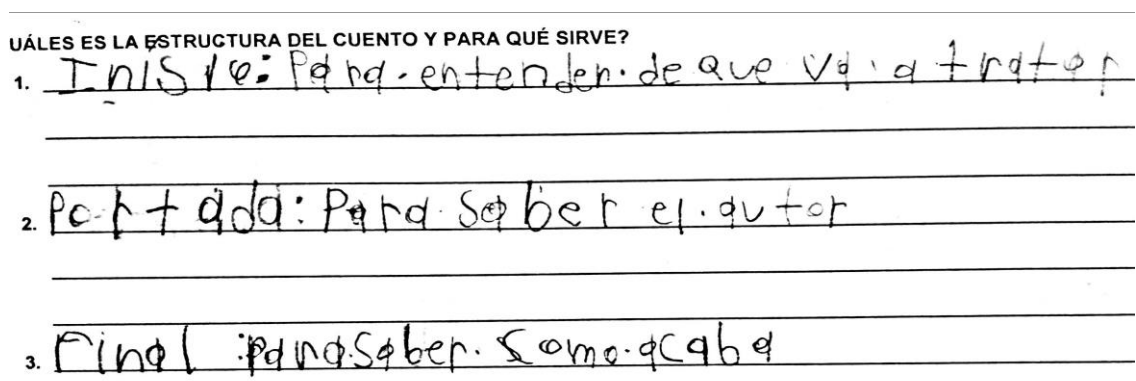 UÁLES ES LA ESTRUCTURA DEL CUENTO Y PARA QUÉ SIRVE?
1. Inisio: Para.entender.de que va.a tratar
2. Portada: Para saber el.autor
3. Final :para.saber.somo.acaba